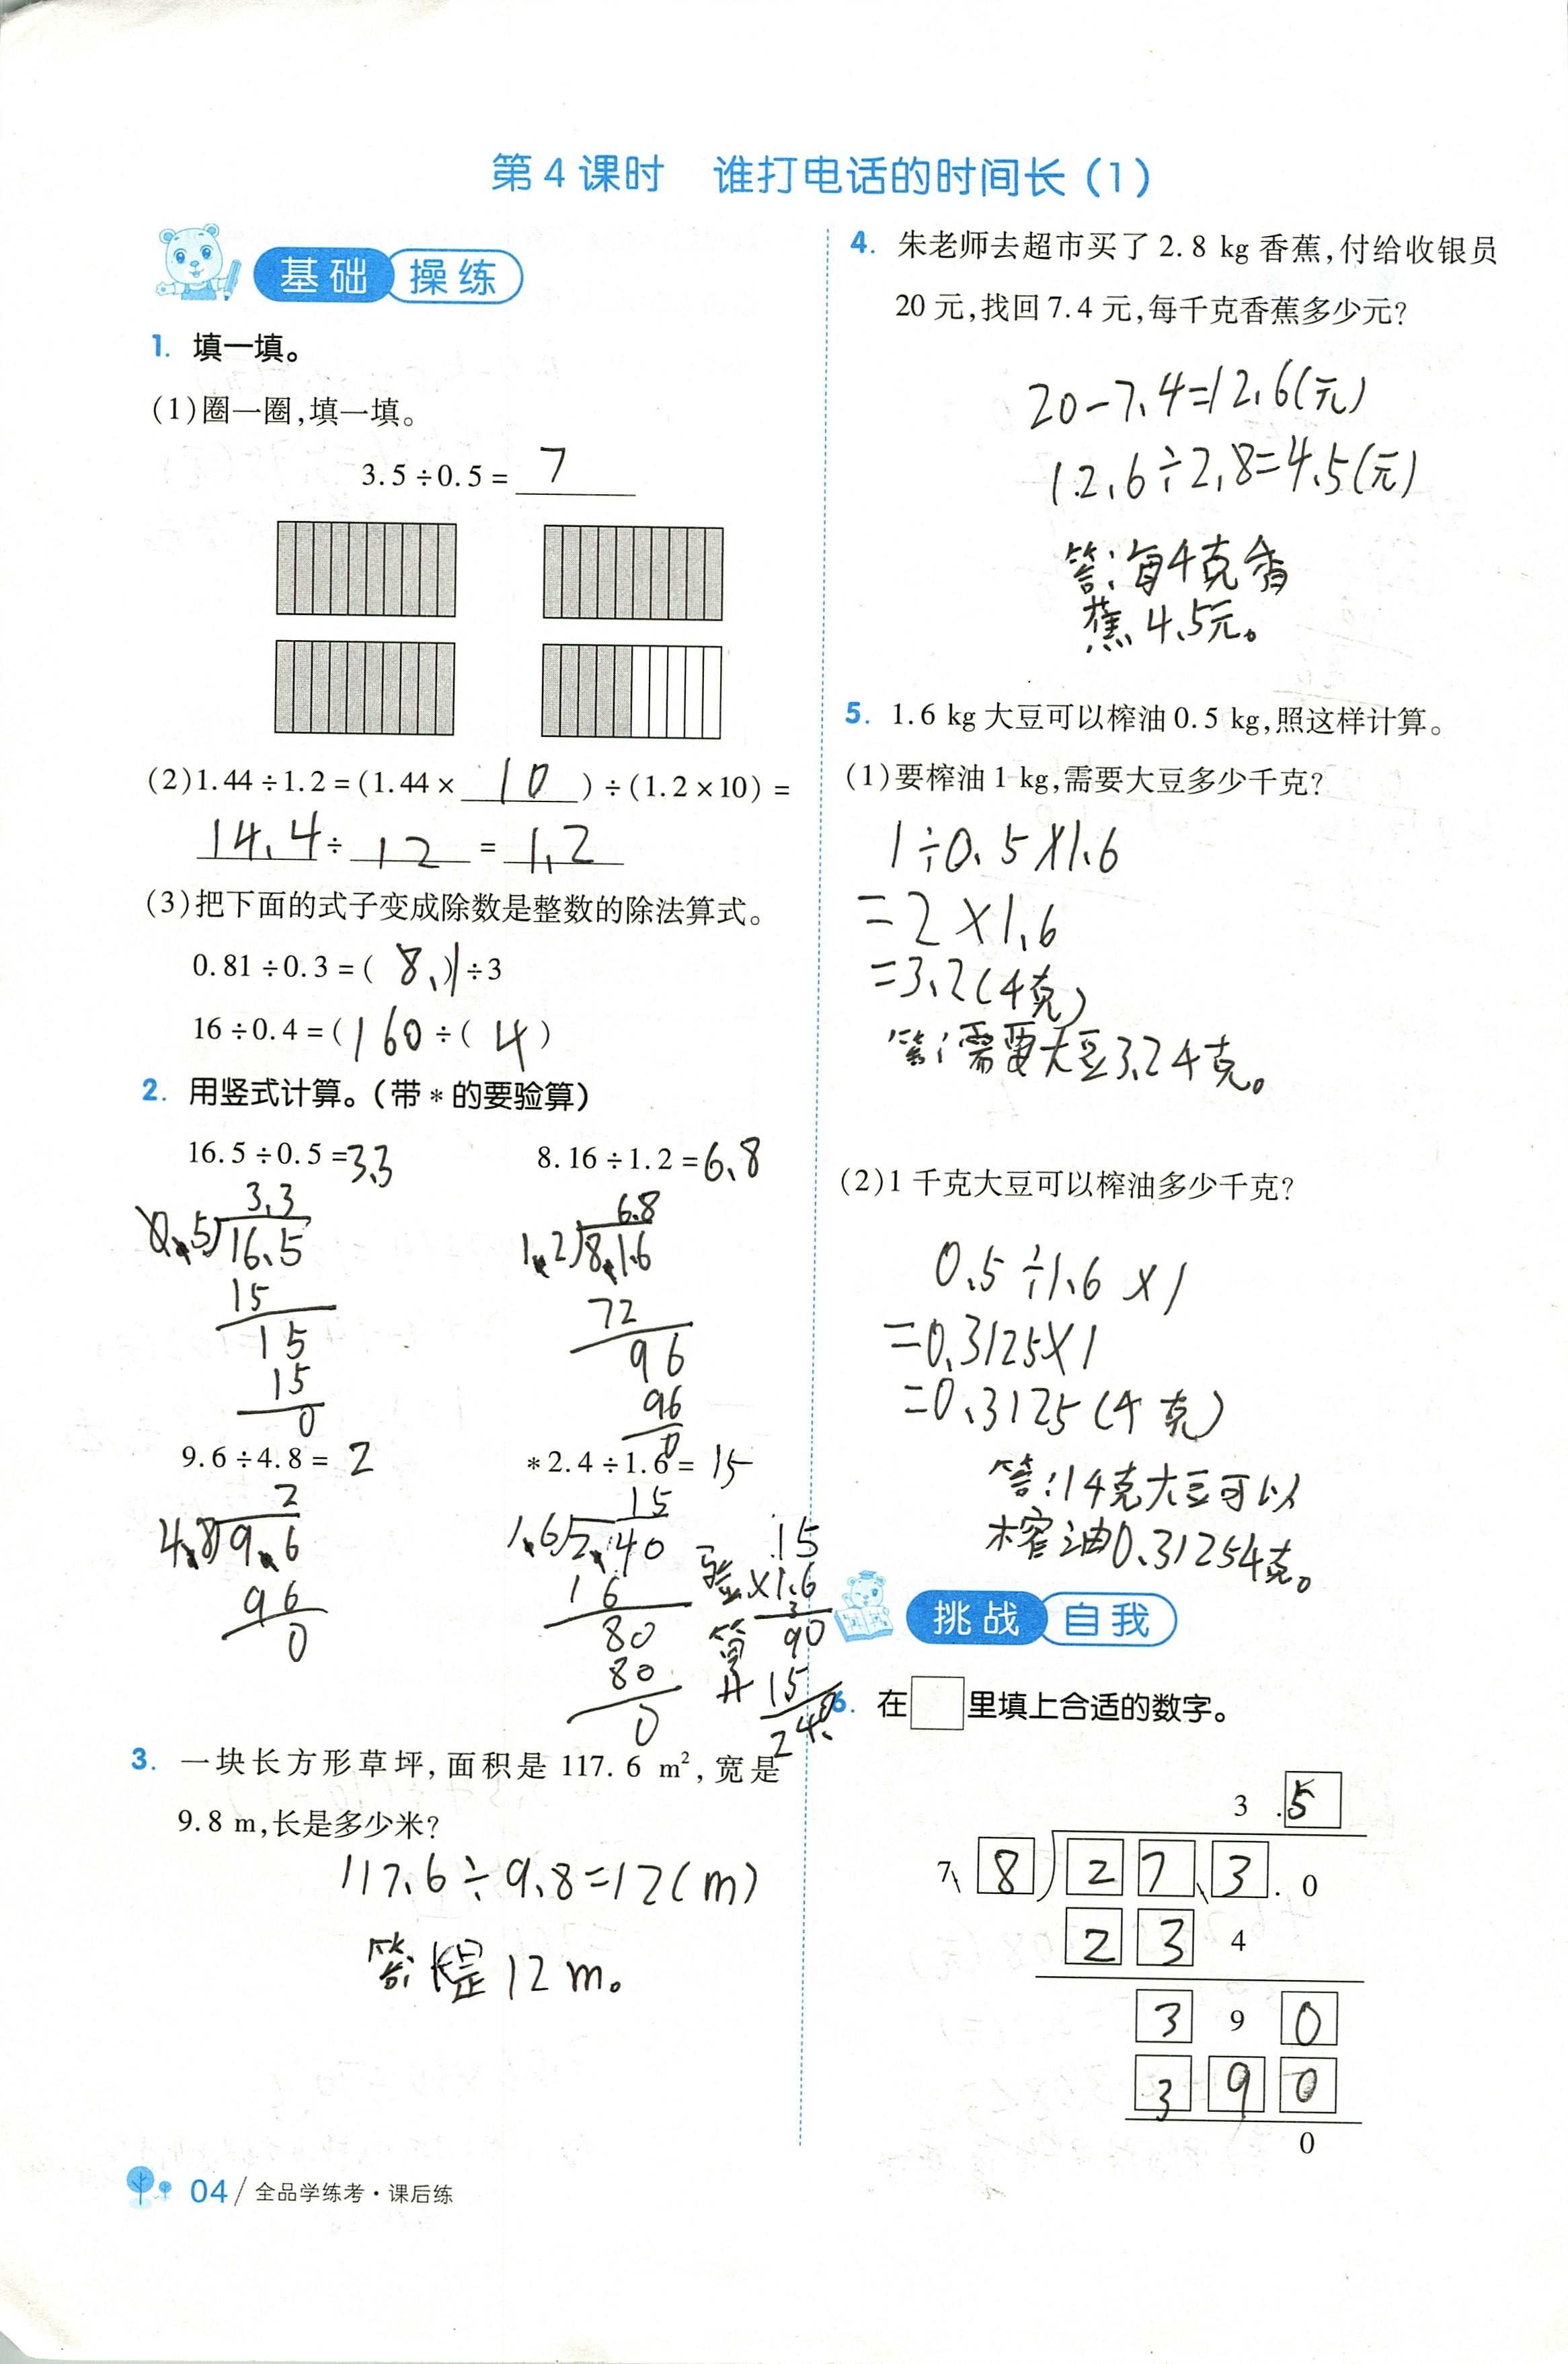 第4课时 谁打电话的时间长(1)
基础 操练
1. 填一填。
(1)圈一圈,填一填。
3.5÷0.5=7
(2)1.44÷1.2=(1.44×10)÷(1.2×10)=
14.4÷12=1.2
(3)把下面的式子变成除数是整数的除法算式。
0.81÷0.3=(8.1)÷3
16÷0.4=(160÷(4)
2. 用竖式计算。(带*的要验算)
16.5÷0.5=3.3 8.16÷1.2=6.8
3.3 6.8
0.5)16.5 1.2)8.16
15 72
15 96
15 96
0 0
9.6÷4.8=2 *2.4÷1.6=15
2 15
4.8)9.6 1.6)2.40
96 16
0 80
80
0
验算
15
×1.6
90
15
24.0
3. 一块长方形草坪,面积是117.6 m²,宽是
9.8 m,长是多少米?
117.6÷9.8=12(m)
答:长是12m。
04/全品学练考·课后练
4. 朱老师去超市买了2.8 kg香蕉,付给收银员
20元,找回7.4元,每千克香蕉多少元?
20-7.4=12.6(元)
12.6÷2.8=4.5(元)
答:每千克香
蕉4.5元。
5. 1.6 kg大豆可以榨油0.5 kg,照这样计算。
(1)要榨油1 kg,需要大豆多少千克?
1÷0.5×1.6
=2×1.6
=3.2(千克)
答:需要大豆3.2千克。
(2)1千克大豆可以榨油多少千克?
0.5÷1.6×1
=0.3125×1
=0.3125(千克)
答:1千克大豆可以
榨油0.3125千克。
挑战 自我
6. 在□里填上合适的数字。
3.5
7.8)27.3.0
234
390
390
0